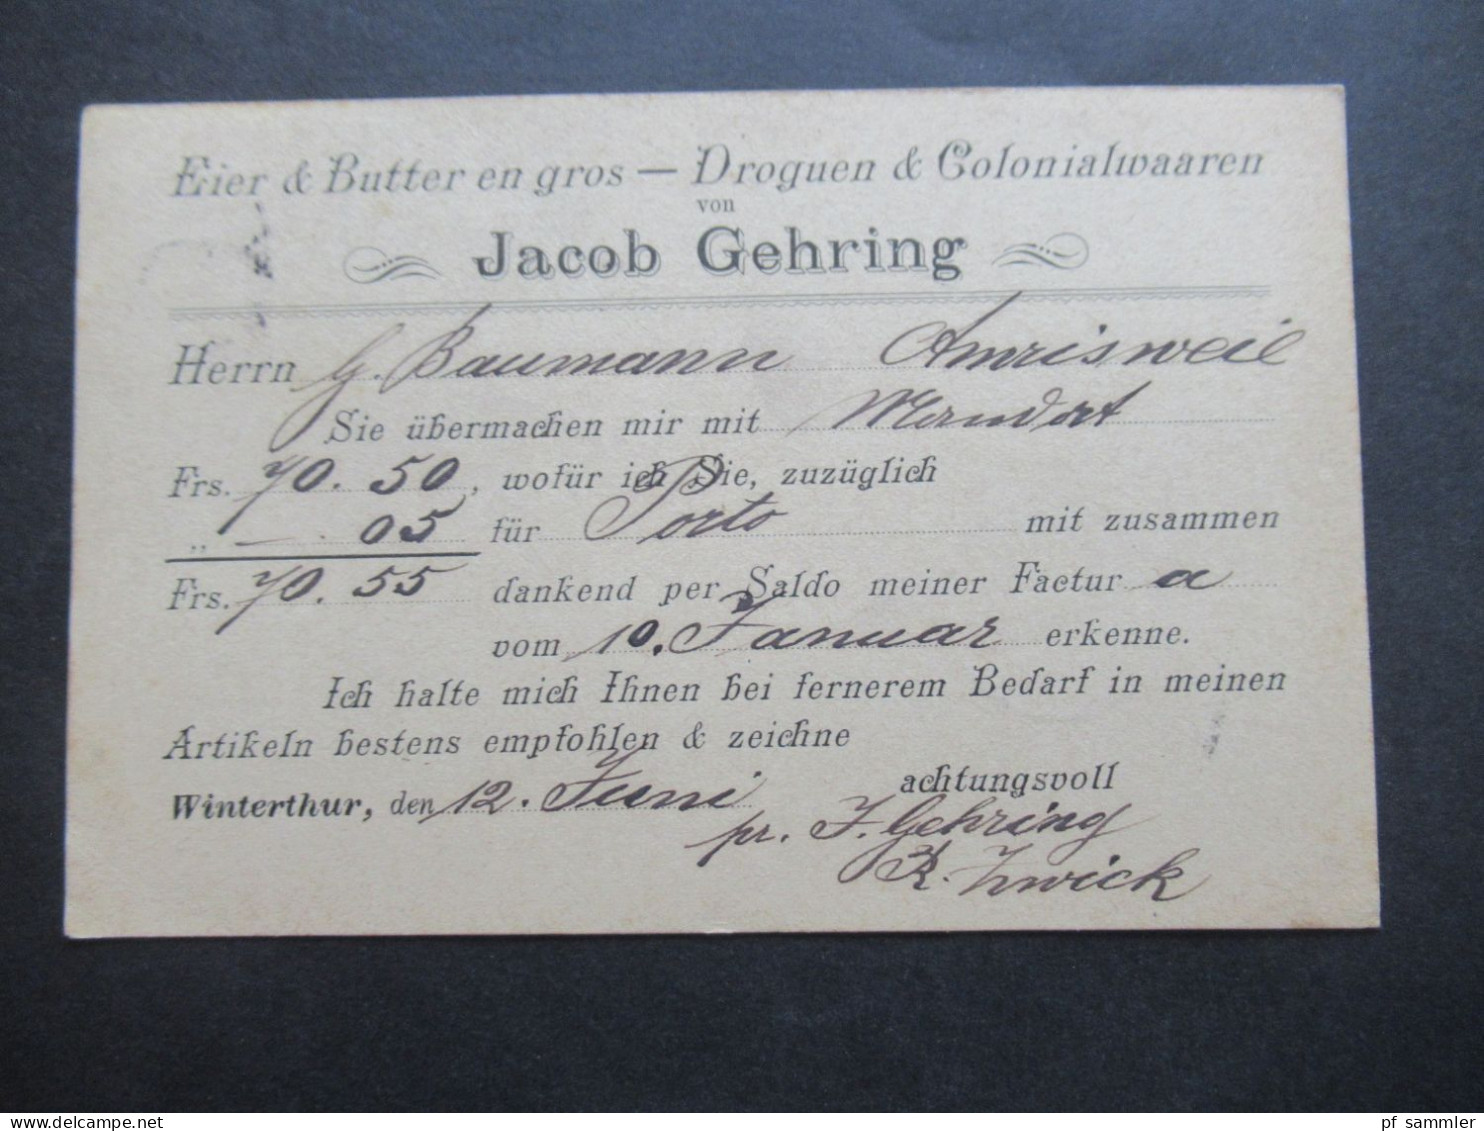 Eier & Butter en gros — Droguen & Colonialwaaren
von
Jacob Gehring
Herrn G. Baumann Amrisweil
Sie übermachen mir mit Mandat
Frs. 70.50, wofür ich Sie, zuzüglich
„ —.05 für Porto mit zusammen
Frs. 70.55 dankend per Saldo meiner Factur a
vom 10. Januar erkenne.
Ich halte mich Ihnen bei fernerem Bedarf in meinen
Artikeln bestens empfohlen & zeichne
achtungsvoll
Winterthur, den 12. Juni
pr. J. Gehring
R. Zwick
© DELCAMPE.NET
pf_sammler